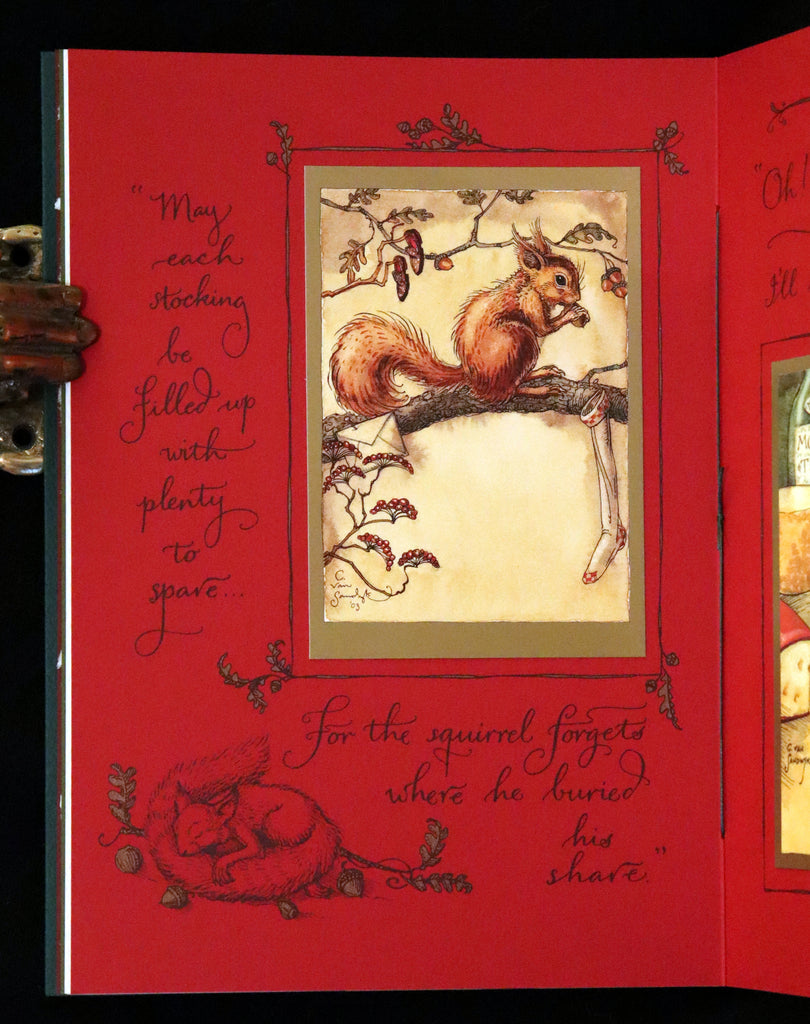 "May
each
stocking
be
filled up
with
plenty
to
spare...
C.
van
Sandwyk
'03
For the squirrel forgets
where he buried
his
share."
"Oh!
I'll